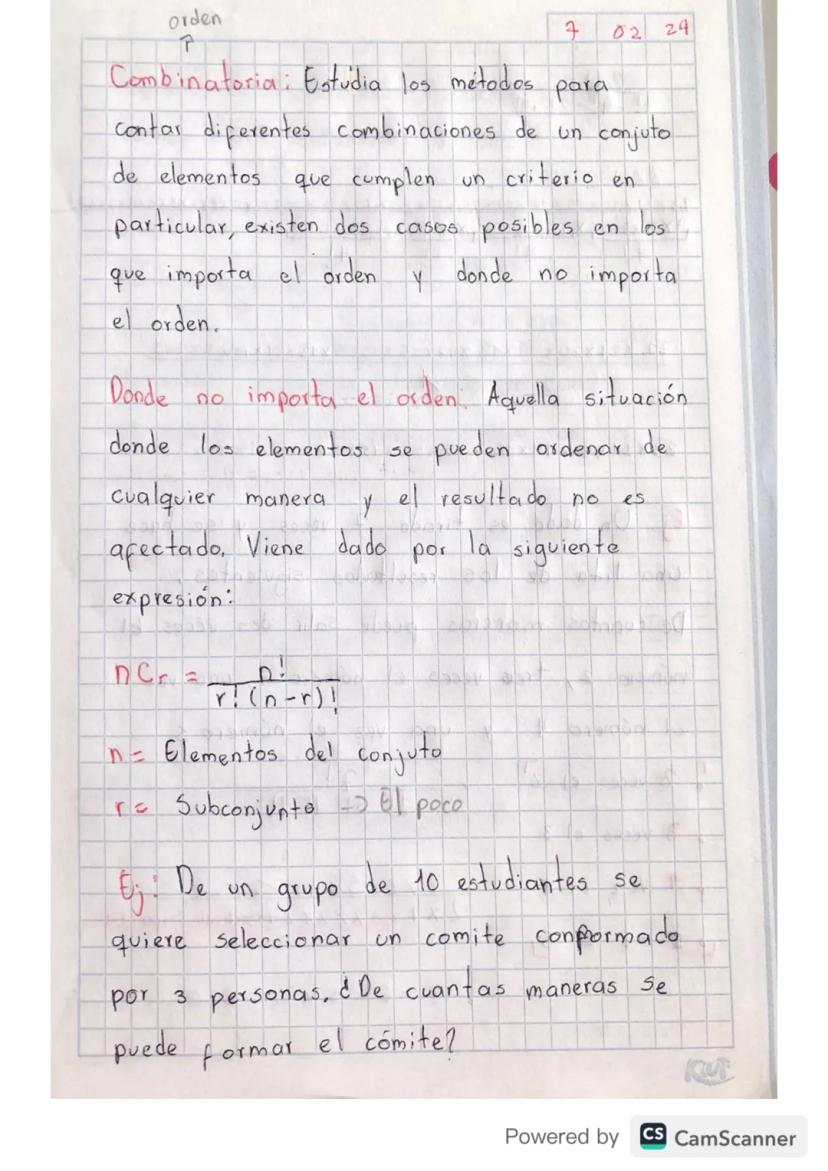 orden
7 02 24
Combinatoria: Estudia los métodos para
contar diferentes combinaciones de un conjuto
de elementos que cumplen un criterio en
particular, existen dos casos posibles en los
que importa el orden y donde no importa
el orden.
Donde no importa el orden: Aquella situación
donde los elementos se pueden ordenar de
cualquier manera y el resultado no es
afectado. Viene dado por la siguiente
expresión:
nCr = n! / r!(n-r)!
n = Elementos del conjuto
r = Subconjunto -> El poco
Ej: De un grupo de 10 estudiantes se
quiere seleccionar un comite conformado
por 3 personas. ¿De cuantas maneras se
puede formar el cómite?
Powered by CS CamScanner